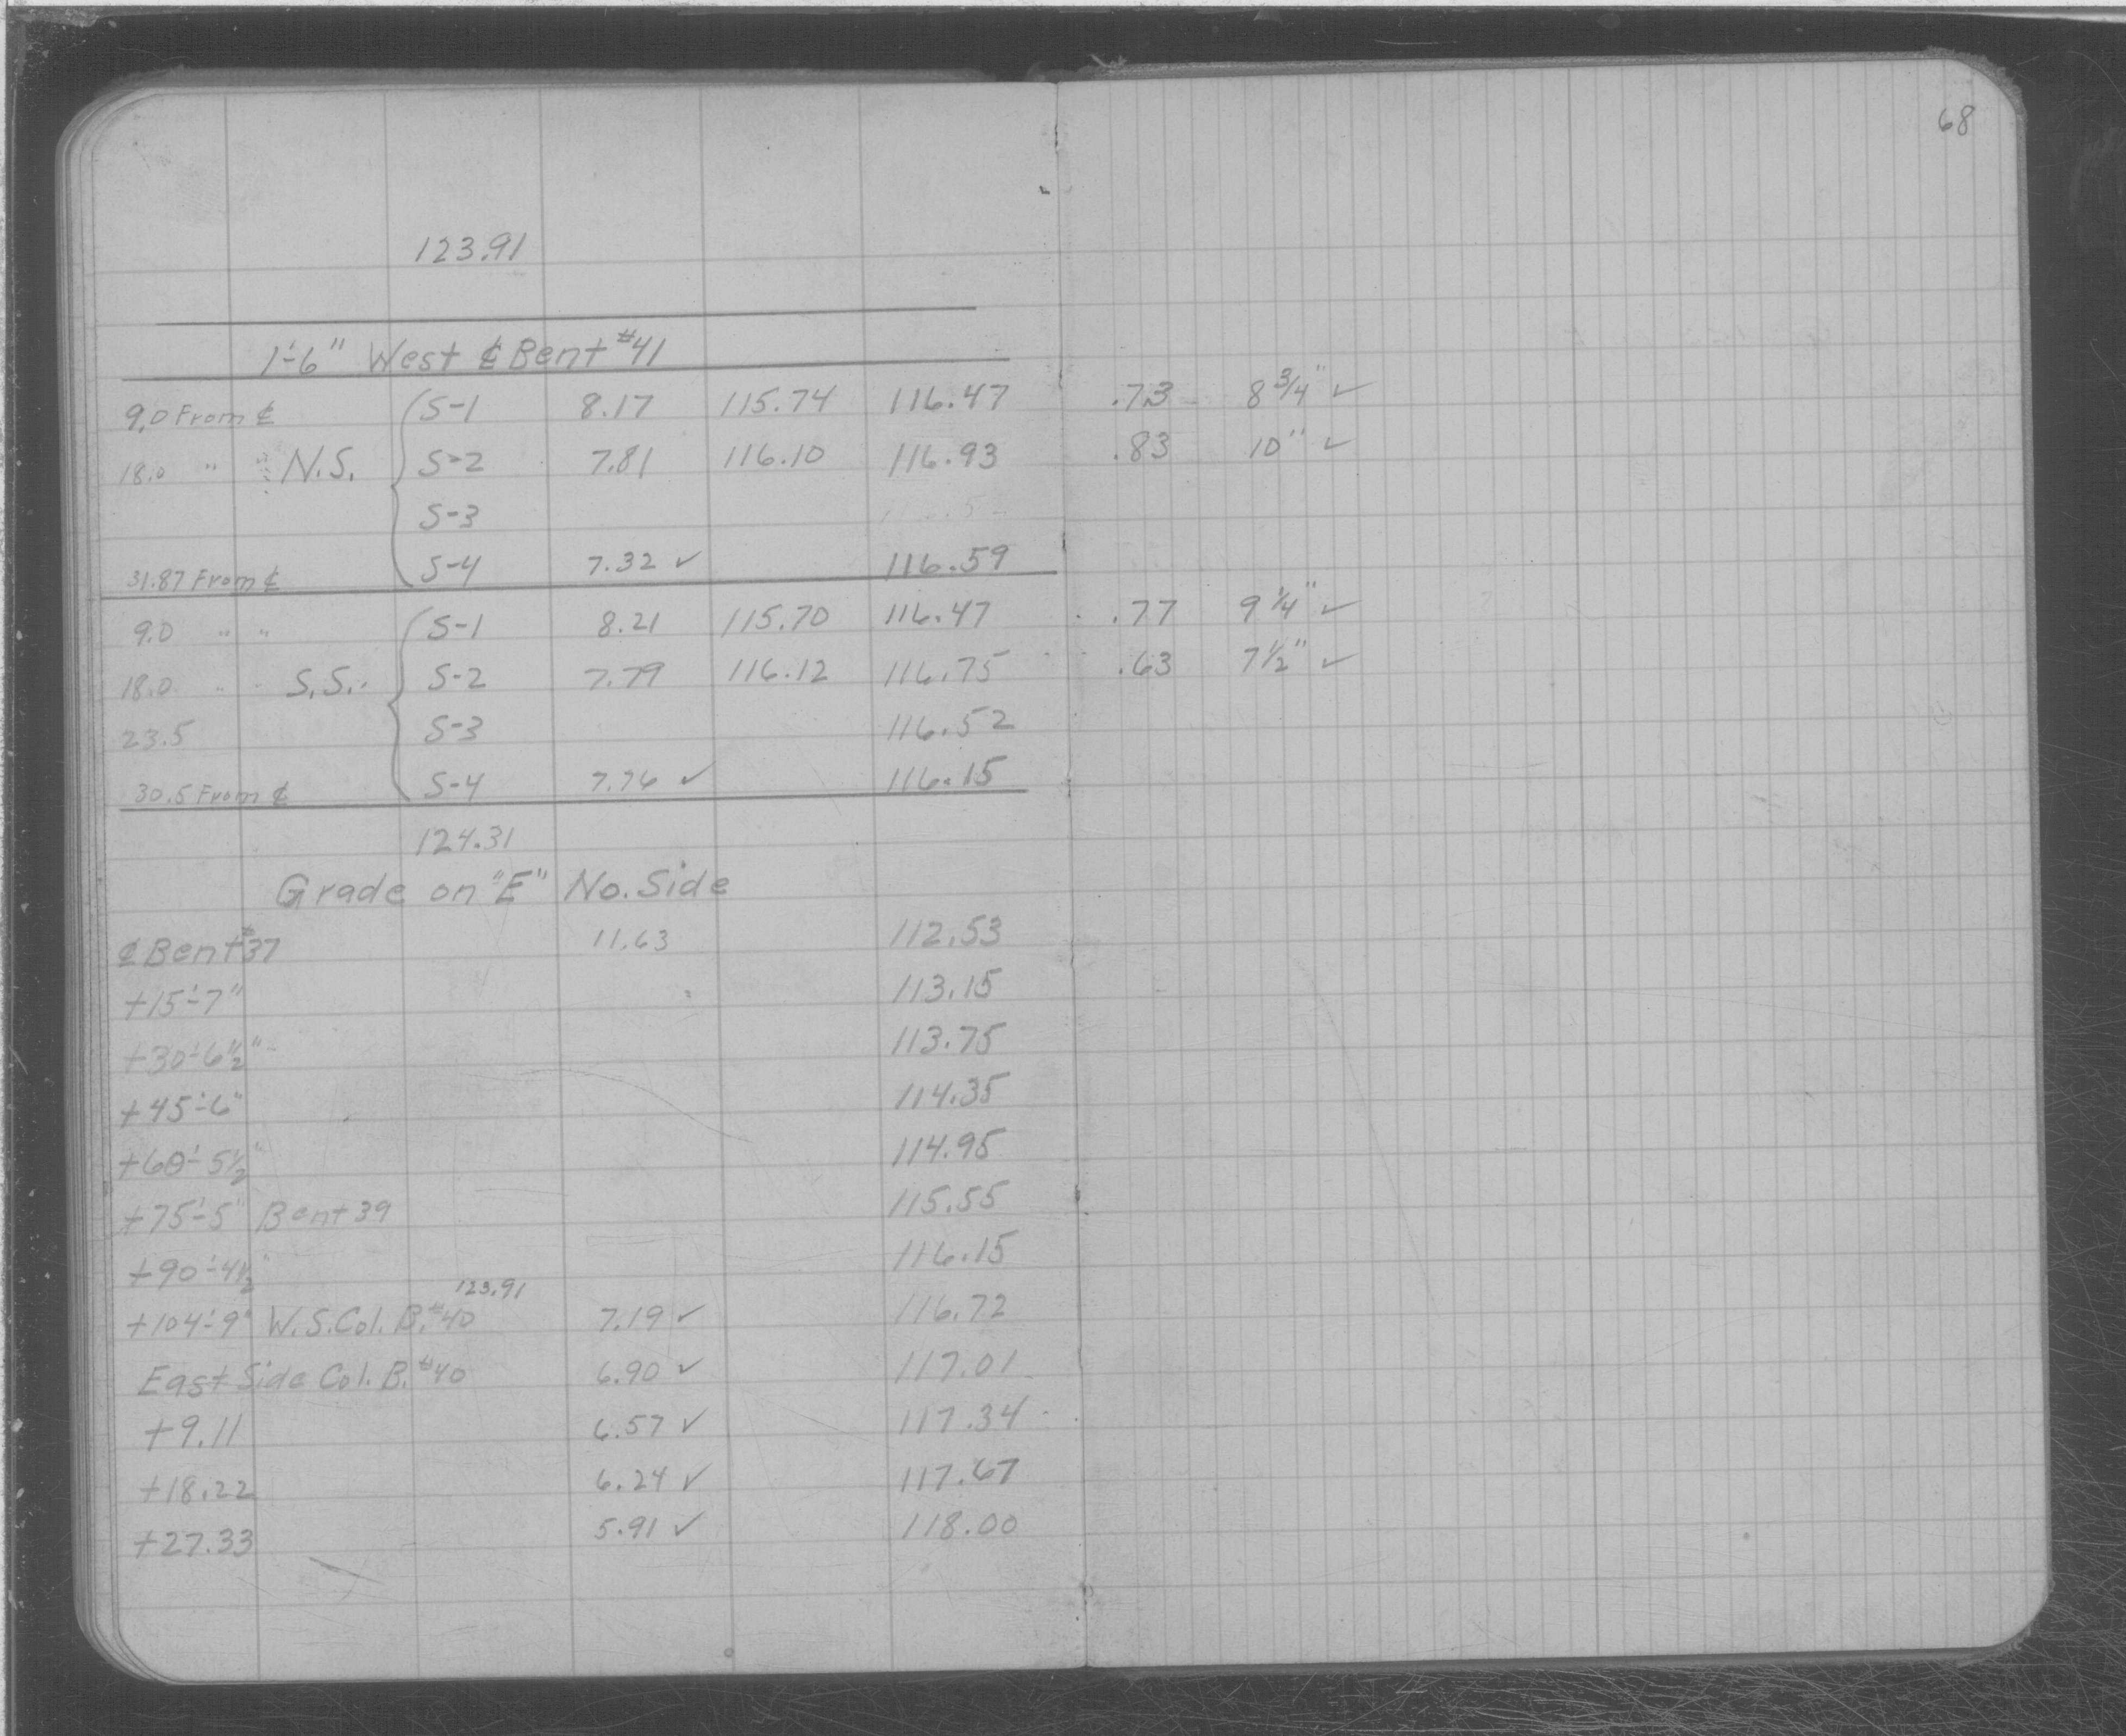 68
123.91
1'-6" West ℄ Bent #41
9.0 From ℄ S-1 8.17 115.74 116.47 .73 8 3/4" ✓
18.0 " N.S. S-2 7.81 116.10 116.93 .83 10" ✓
S-3
31.87 From ℄ S-4 7.32 ✓ 116.59
9.0 " " S-1 8.21 115.70 116.47 .77 9 1/4" ✓
18.0 " " S.S. S-2 7.79 116.12 116.75 .63 7 1/2" ✓
23.5 S-3 116.52
30.5 From ℄ S-4 7.76 ✓ 116.15
124.31
Grade on "E" No. Side
℄ Bent #37 11.63 112.53
+15'-7" 113.15
+30'-6 1/2" 113.75
+45'-6" 114.35
+60'-5 1/2" 114.95
+75'-5" Bent 39 115.55
+90'-4 1/2" 116.15
123.91
+104'-9" W.S. Col. B. #40 7.19 ✓ 116.72
East Side Col. B. #40 6.90 ✓ 117.01
+9.11 6.57 ✓ 117.34
+18.22 6.24 ✓ 117.67
+27.33 5.91 ✓ 118.00